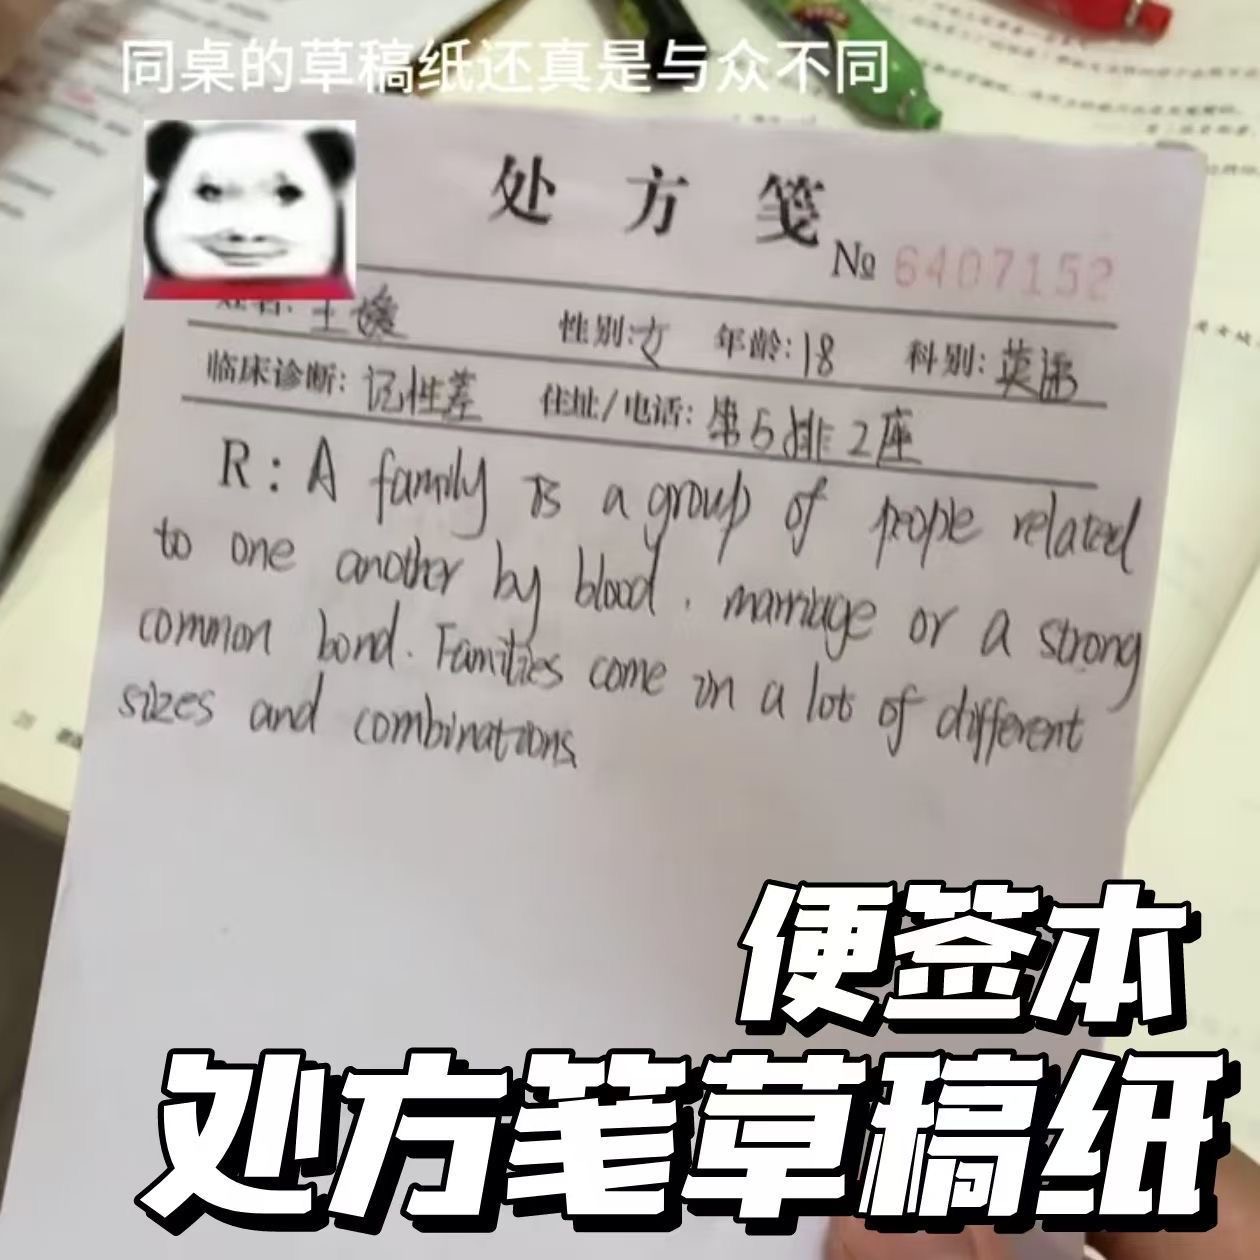 同桌的草稿纸还真是与众不同
处方笺
№ 6407152
姓名: 王
性别: 女 年龄: 18 科别: 英语
临床诊断: 记性差 住址/电话: 第5排2座
R: A family is a group of people related
to one another by blood. marriage or a strong
common bond. Families come in a lot of different
sizes and combinations
便签本
处方笔草稿纸